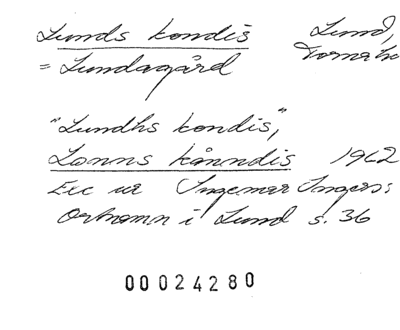 Lunds kondis Lund,
= Lundagård Torna hd
"Lundhs kondis",
Lonns kånndis 1962
Exc ur Ingemar Ingers:
Ortnamn i Lund s. 36
00024280